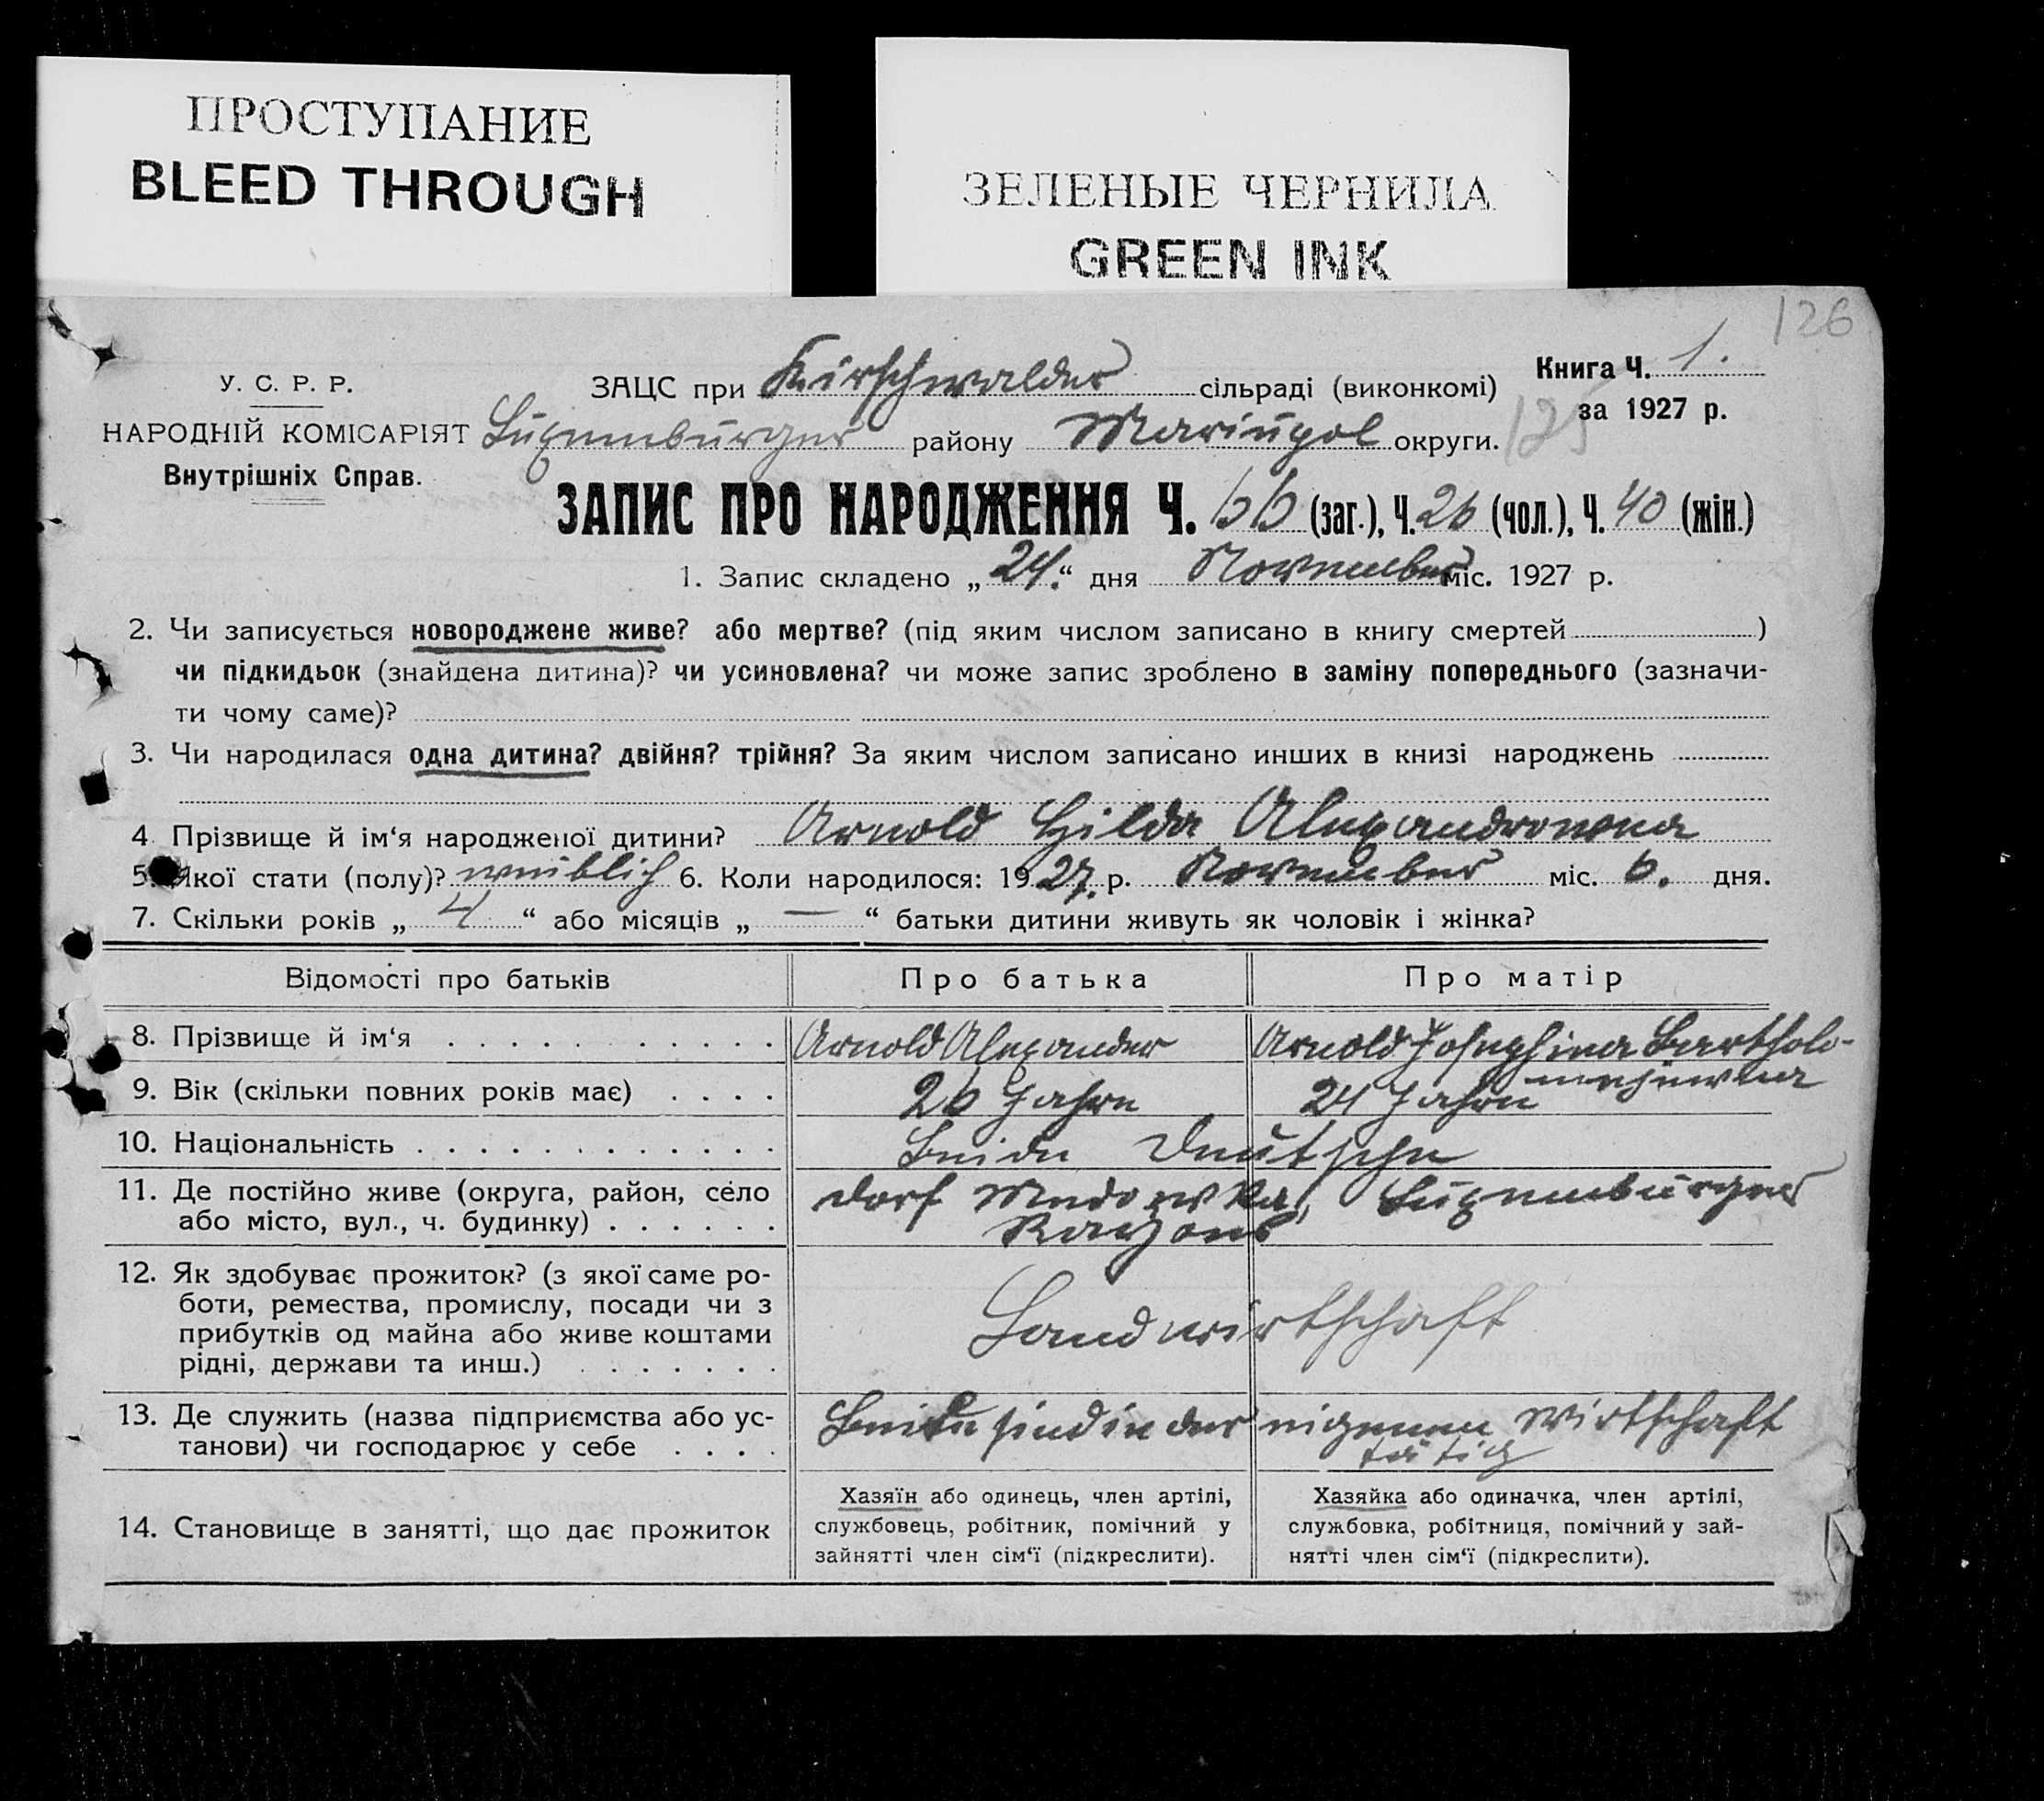 ПРОСТУПАНИЕ
BLEED THROUGH
ЗЕЛЕНЫЕ ЧЕРНИЛА
GREEN INK
126
У. С. Р. Р.
НАРОДНІЙ КОМІСАРІЯТ
Внутрішніх Справ.
ЗАЦС при Kirschwalder сільраді (виконкомі)
Luxemburger району Mariupol округи.
Книга Ч. 1.
за 1927 р.
125
ЗАПИС ПРО НАРОДЖЕННЯ Ч. 66 (заг.), Ч. 26 (чол.), Ч. 40 (жін.)
1. Запис складено „ 24. “ дня November міс. 1927 р.
2. Чи записується новороджене живе? або мертве? (під яким числом записано в книгу смертей )
чи підкидьок (знайдена дитина)? чи усиновлена? чи може запис зроблено в заміну попереднього (зазначи-
ти чому саме)?
3. Чи народилася одна дитина? двійня? трійня? За яким числом записано инших в книзі народжень
4. Прізвище й ім‘я народженої дитини? Arnold Hilda Alexandrowna
5. Якої стати (полу)? weiblich 6. Коли народилося: 19 27. р. November міс. 6. дня.
7. Скільки років „ 4 “ або місяців „ — “ батьки дитини живуть як чоловік і жінка?
Відомості про батьків Про батька Про матір
8. Прізвище й ім‘я Arnold Alexander Arnold Josephina Bartholo-
mejewna
9. Вік (скільки повних років має) 26 Jahre 24 Jahre
10. Національність Beide Deutsche
11. Де постійно живе (округа, район, село
або місто, вул., ч. будинку)
Dorf Medowka, Luxemburger
Rayons
12. Як здобуває прожиток? (з якої саме ро-
боти, ремества, промислу, посади чи з
прибутків од майна або живе коштами
рідні, держави та инш.)
Landwirtschaft
13. Де служить (назва підприємства або ус-
танови) чи господарює у себе
Beide sind in der eigenen Wirtschaft
tätig
14. Становище в занятті, що дає прожиток
Хазяїн або одинець, член артілі,
службовець, робітник, помічний у
зайнятті член сім‘ї (підкреслити).
Хазяйка або одиначка, член артілі,
службовка, робітниця, помічний у зай-
нятті член сім‘ї (підкреслити).